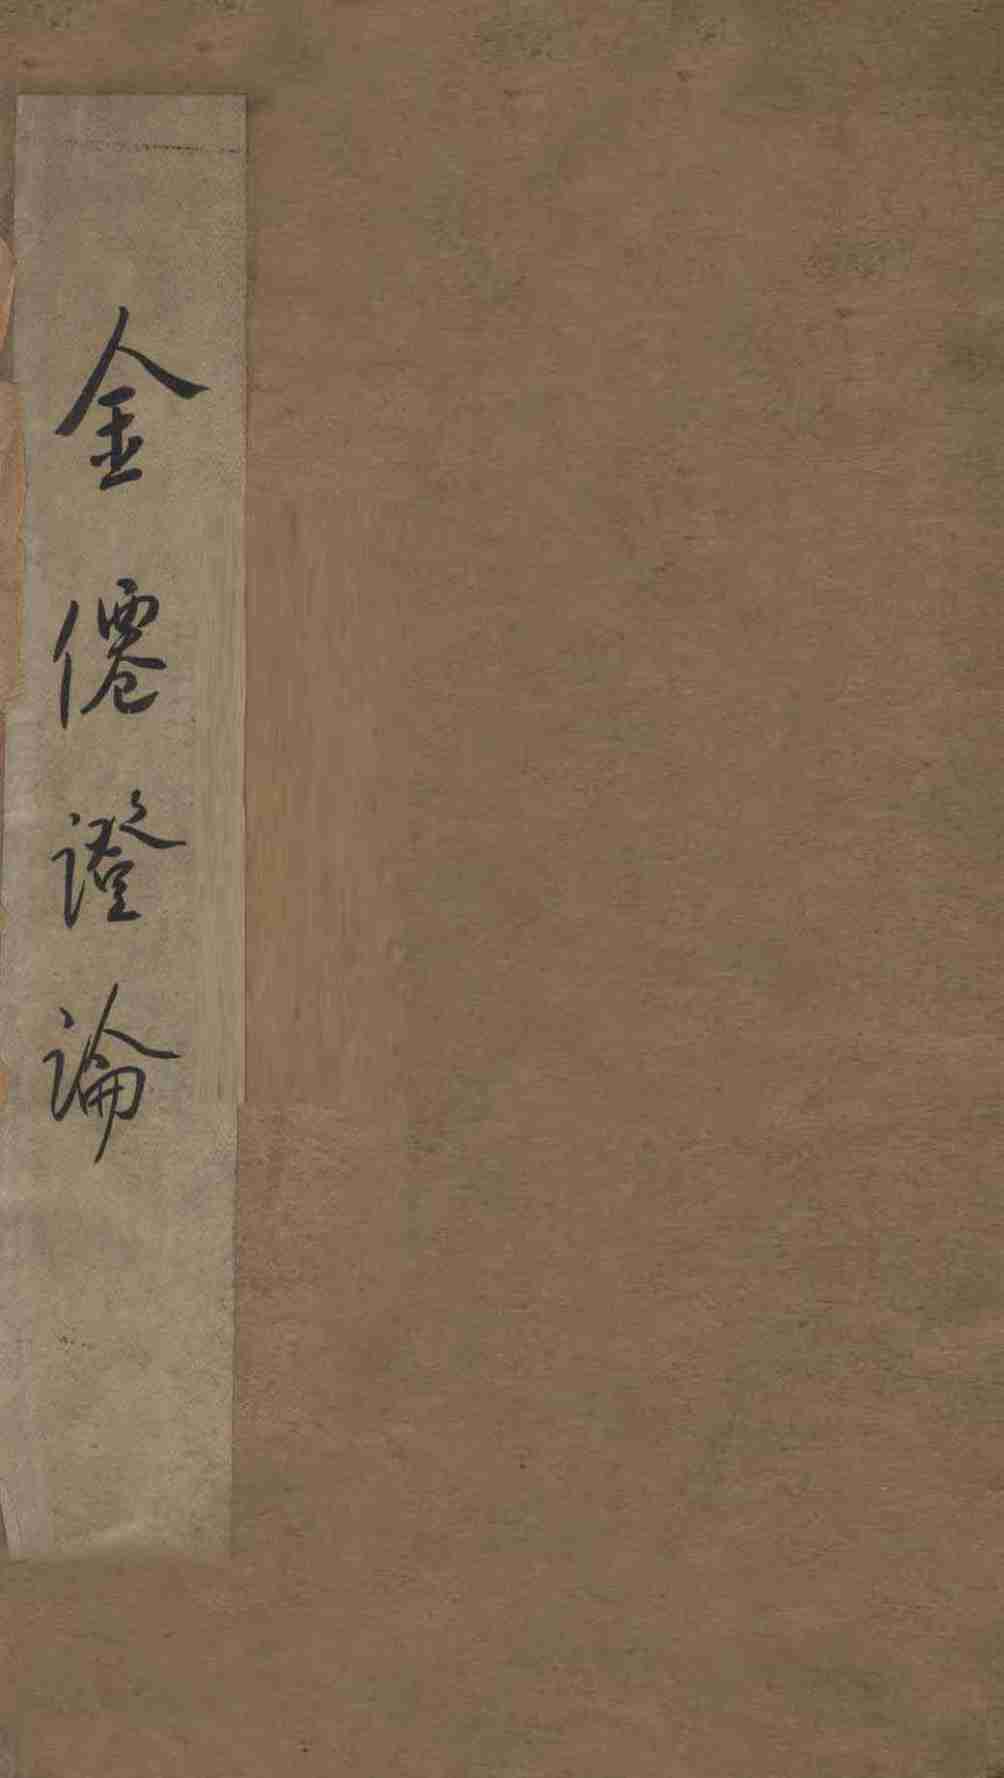 金僊證論